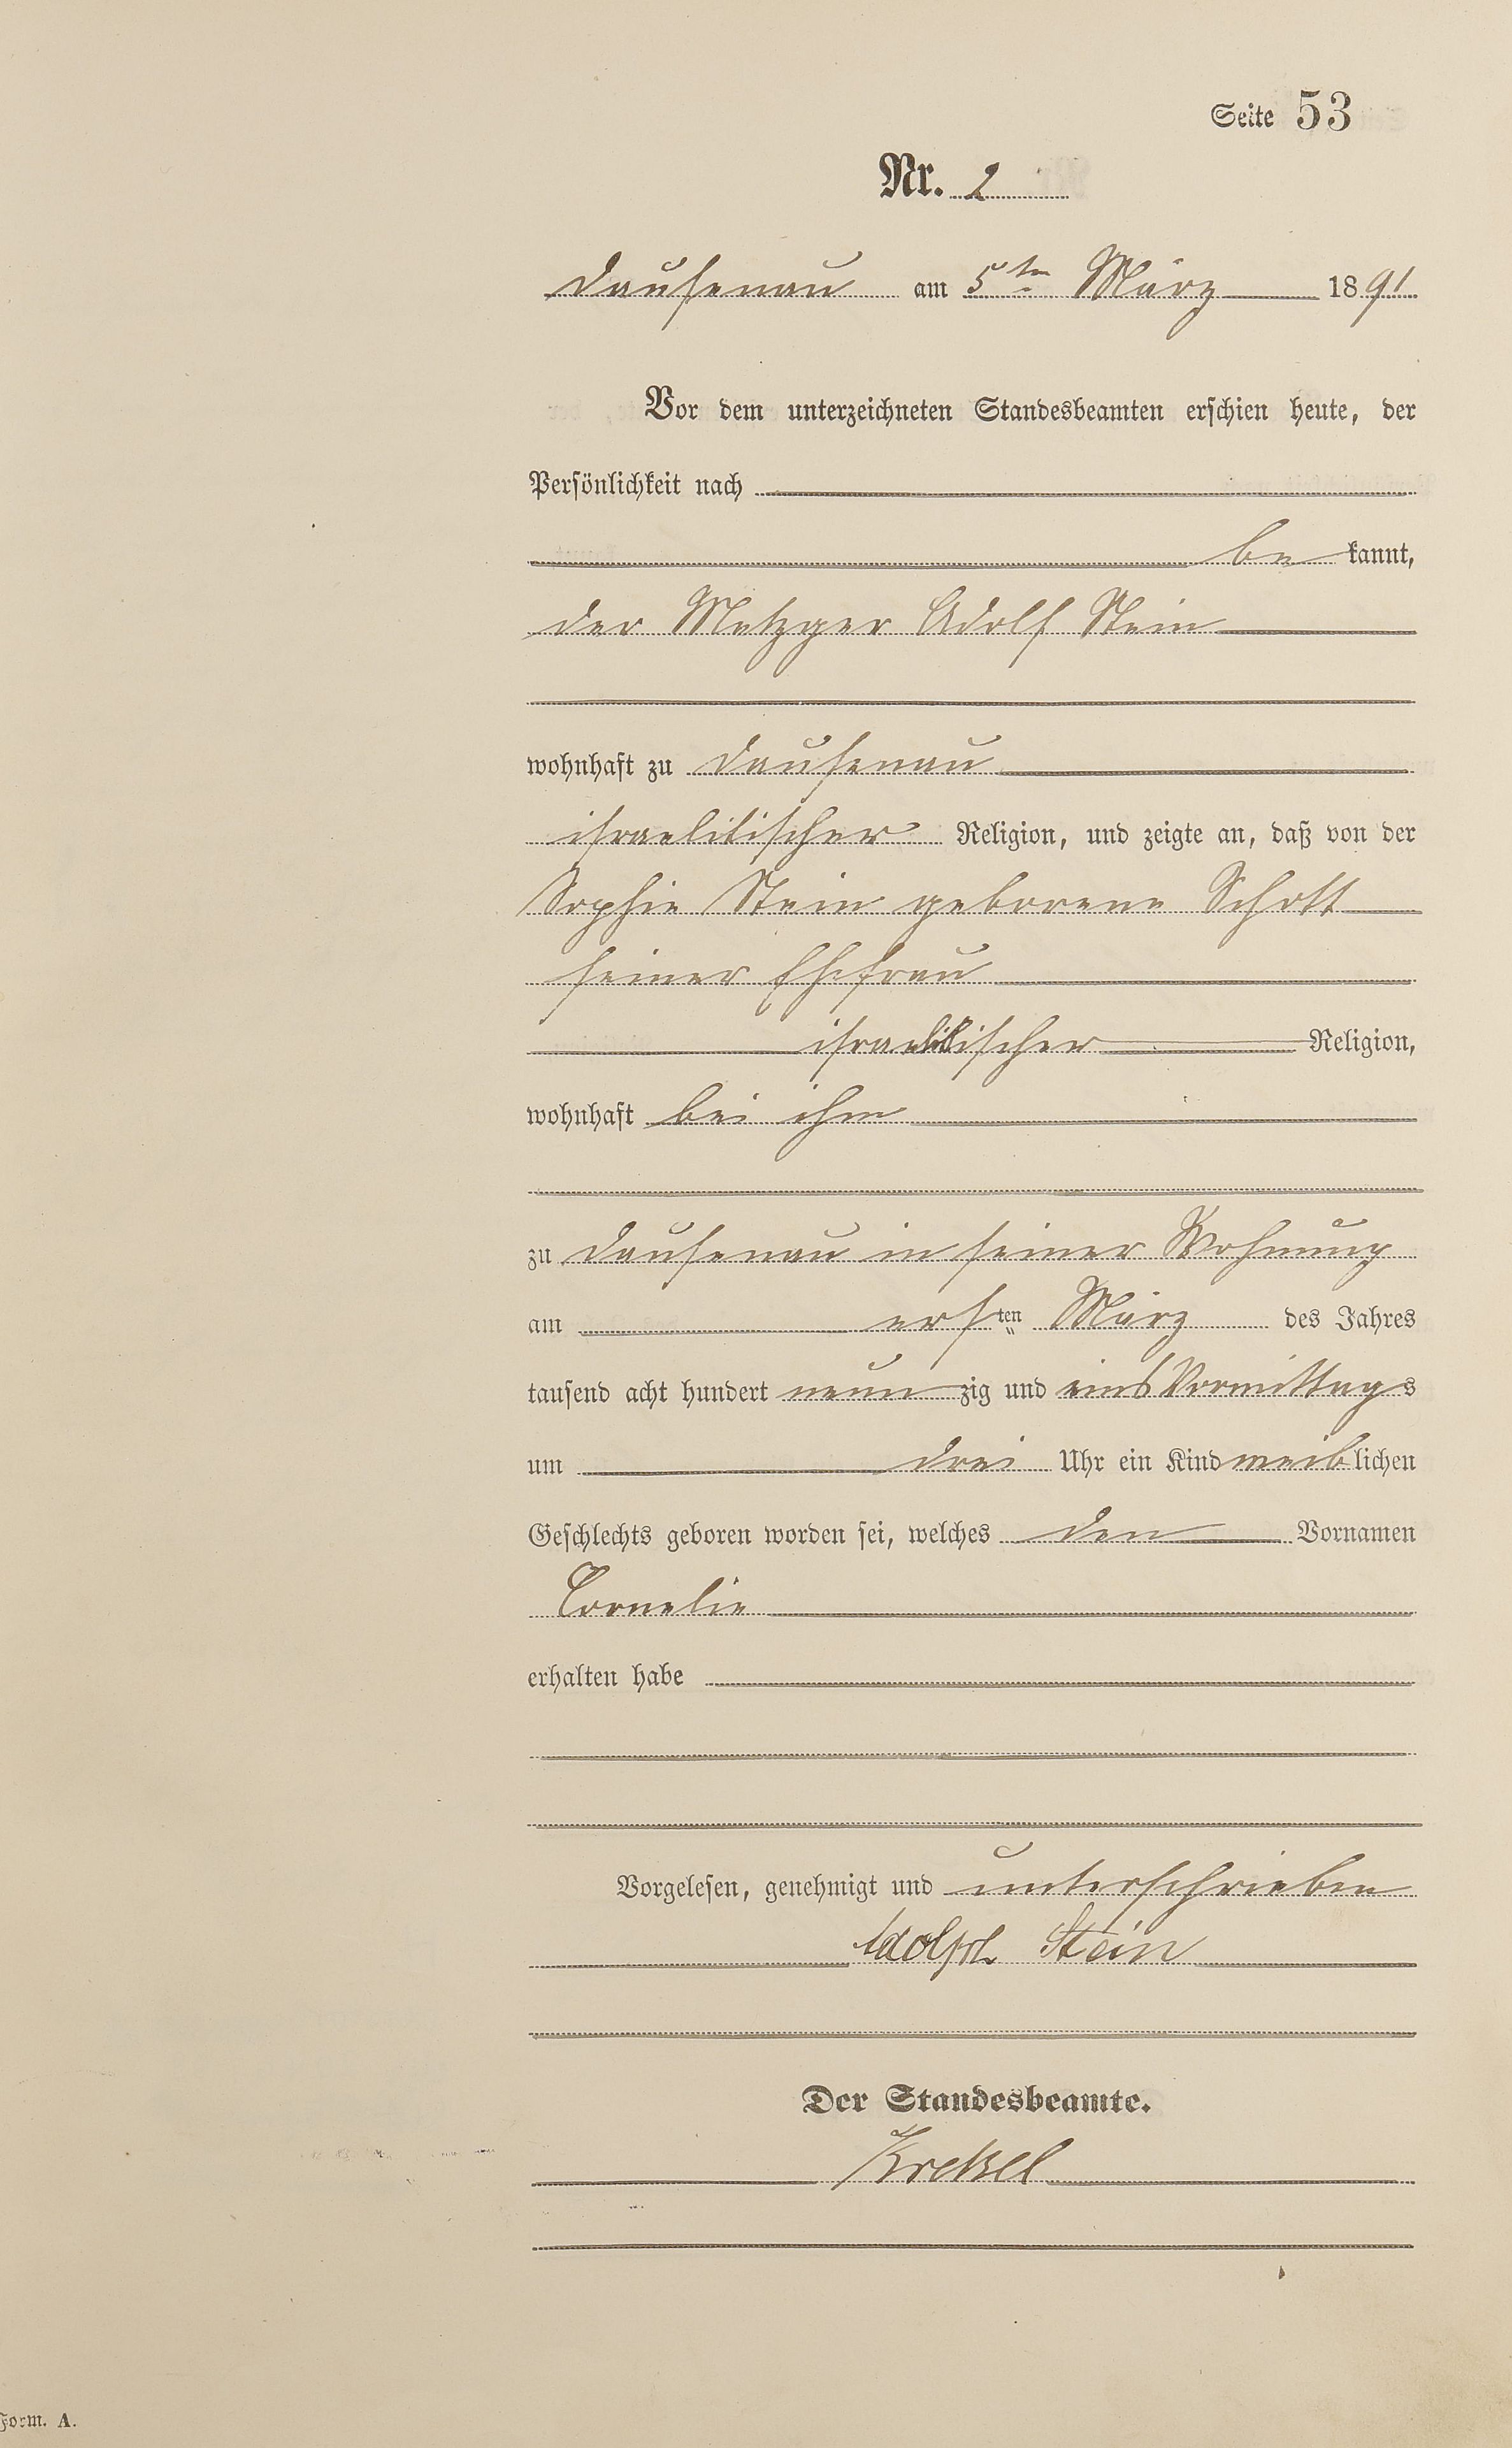 Seite 53
Nr. 2
Dausenau am 5ten März 1891
Vor dem unterzeichneten Standesbeamten erschien heute, der
Persönlichkeit nach
bekannt,
der Metzger Adolf Stein
wohnhaft zu Dausenau
israelitischer Religion, und zeigte an, daß von der
Sophie Stein geborene Schott
seiner Ehefrau
israelitischer Religion,
wohnhaft bei ihm
zu Dausenau in seiner Wohnung
am ersten März des Jahres
tausend acht hundert neunzig und eins Vormittags
um drei Uhr ein Kind weiblichen
Geschlechts geboren worden sei, welches den Vornamen
Cornelie
erhalten habe
Vorgelesen, genehmigt und unterschrieben
Adolph Stein
Der Standesbeamte.
Krekel
Form. A.